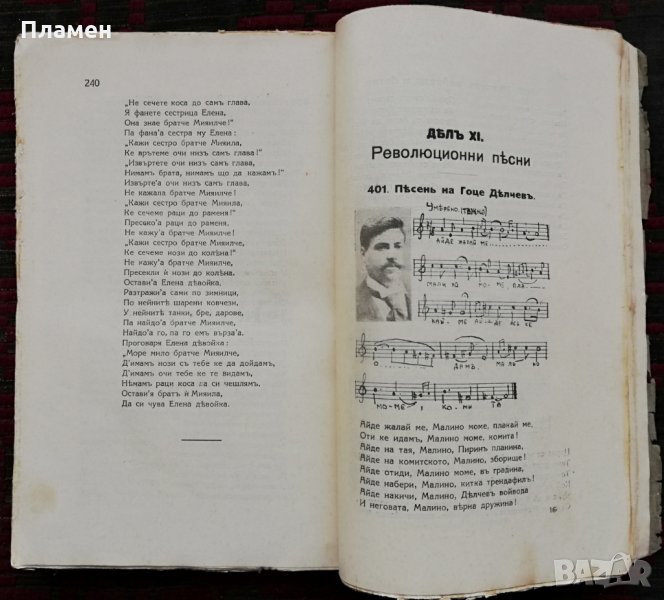 Пламен
240
„Не сечете коса до самъ глава,
Я фанете сестрица Елена,
Она знае братче Мияилче!"
Па фана'а сестра му Елена:
„Кажи сестро братче Мияила,
Ке въртеме очи низъ самъ глава!"
„Извъртете очи низъ самъ глава,
Нимамъ брата, нимамъ що да кажамъ!"
Извърте'а очи низъ самъ глава,
Не кажала братче Мияила.
„Кажи сестро братче Мияила,
Ке сечеме раци до раменя!"
Пресѣко'а раци до раменя.
Не кажу'а братче Мияилче!
„Кажи сестро братче Мияилче,
Ке сечеме нози до колѣна!"
Не кажу'а братче Мияилче,
Пресекли ѝ нози до колѣна.
Остави'а Елена дѣвойка,
Разтража'а сами по зимници,
По нейните шарени ковчези,
У нейните танки, бре, дарове,
Па найдо'а братче Мияилче,
Найдо'а го, па го емъ върза'а.
Проговаря Елена дѣвойка:
„Море мило братче Мияилче,
Д'имамъ нози съ тебе ке да дойдамъ,
Д'имамъ очи тебе ке те видамъ,
Нѣмамъ раци коса да си чешлямъ.
Остави'я братъ ѝ Мияила,
Да си чува Елена дѣвойка.
ДѢЛЪ XI.
Революционни пѣсни
401. Пѣсень на Гоце Дѣлчевъ.
Умѣрено (тѫжно)
АЙДЕ ЖАЛАЙ МЕ
МАЛИ НО МО-МЕ
О ДИМЪ МАЛИ НО
МО-МЕ, КО-МИ ТА
Айде жалай ме, Малино моме, плакай ме,
Оти ке идамъ, Малино моме, комита!
Айде на тая, Малино, Пиринъ планина,
Айде на комитското, Малино, зборище!
Айде отиди, Малино моме, въ градина,
Айде набери, Малино, китка трендафилъ!
Айде накичи, Малино, Дѣлчевъ войвода
И неговата, Малино, вѣрна дружина!
16
BAZAR